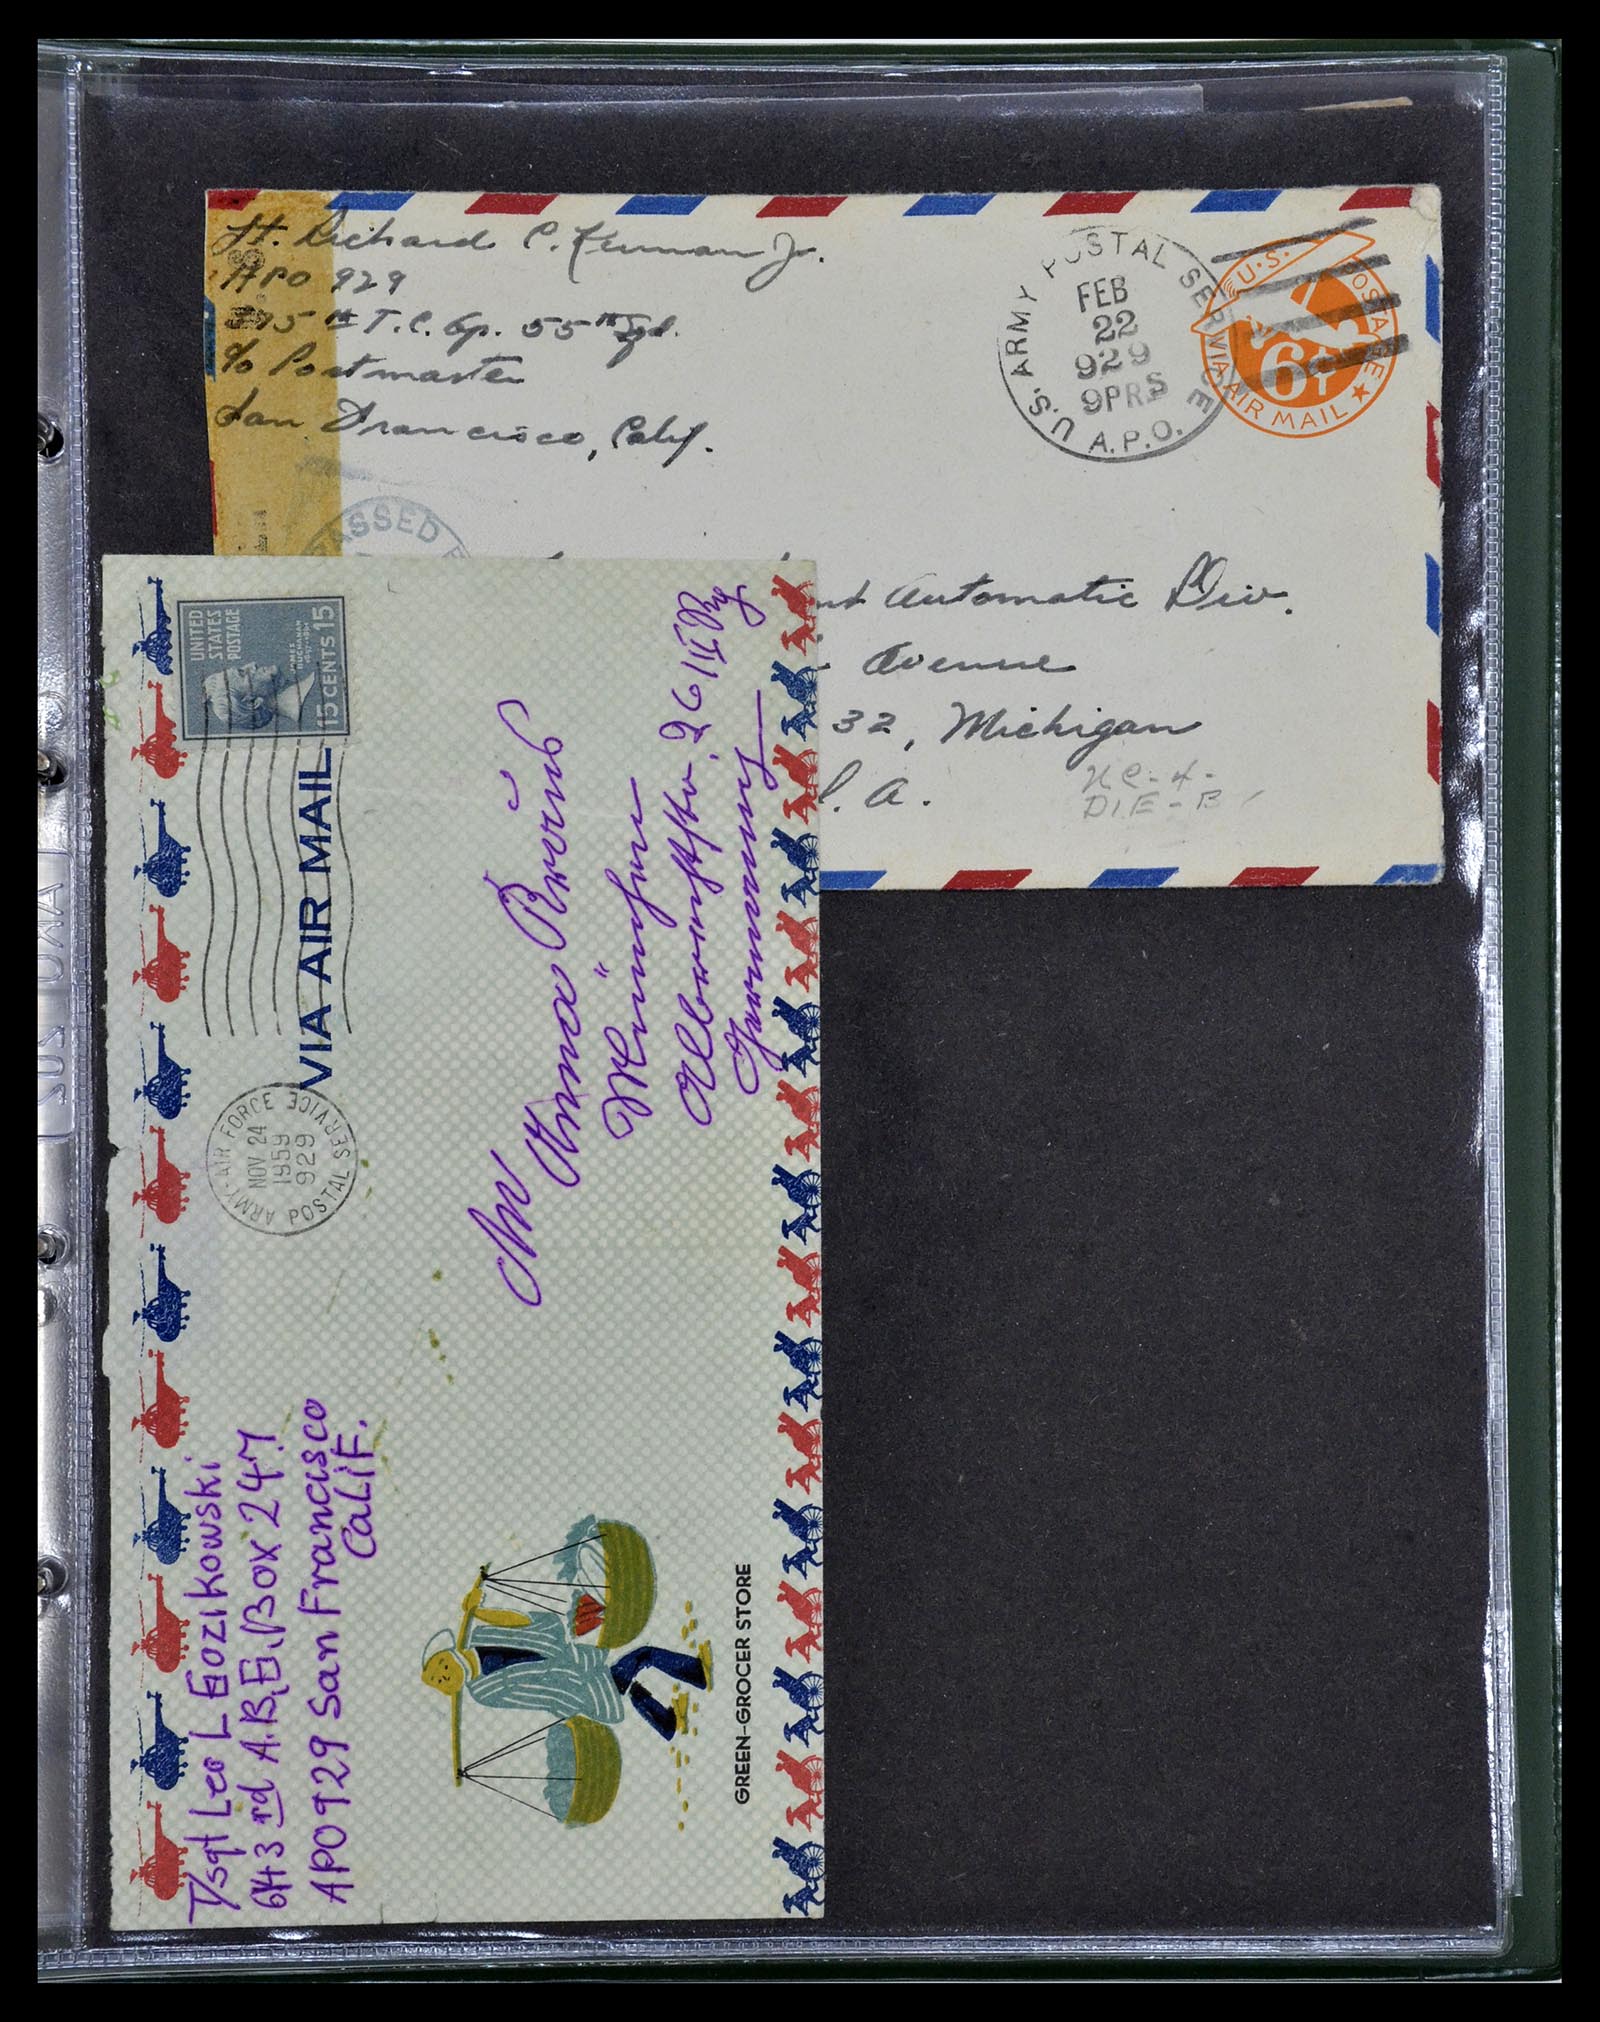 Lt. Richard C. Kerman Jr.
APO 929
375th T.C. Gp. 55th Sqd.
c/o Postmaster
San Francisco, Calif.
U.S. ARMY POSTAL SERVICE
FEB
22
929
A.P.O.
U.S. POSTAGE
6¢
VIA AIR MAIL
PASSED
Automatic Div.
Avenue
32, Michigan
A.
DIE-B
UNITED
STATES
POSTAGE
JAMES
BUCHANAN
15 CENTS 15
VIA AIR MAIL
ARMY-AIR FORCE POSTAL SERVICE
NOV 24
1959
929
An
Anna
München
Germany
T/sgt Leo L Gozikowski
643rd A.B.G. Box 247
APO 929 San Francisco
CaliF.
GREEN-GROCER STORE